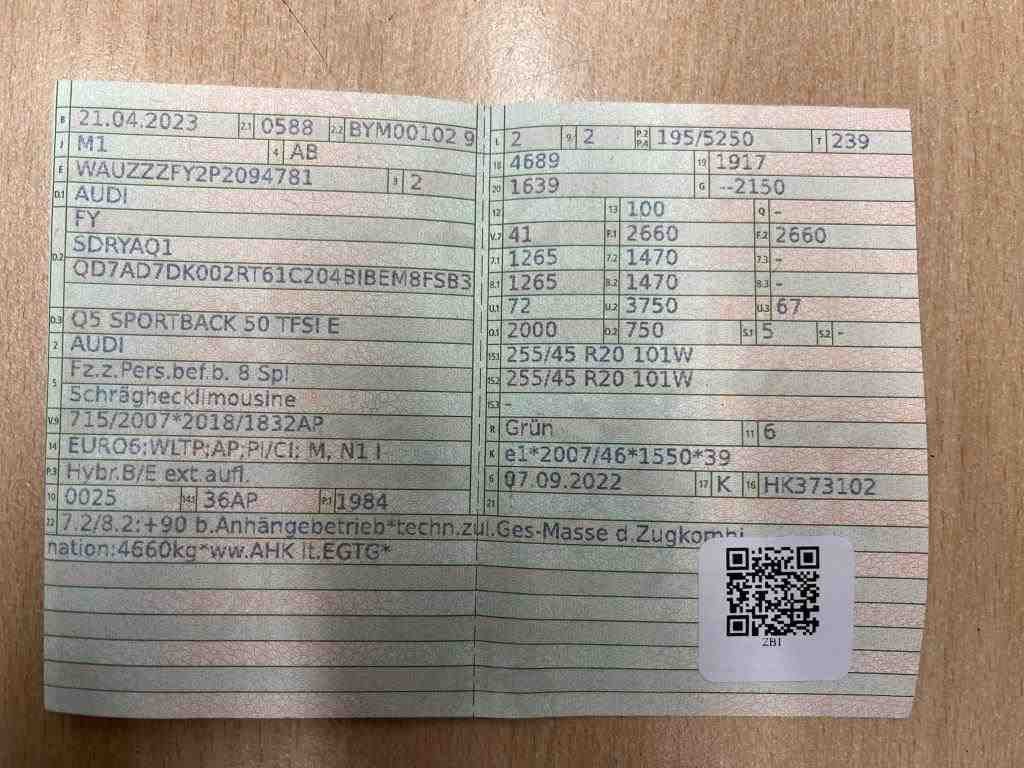 B 21.04.2023 2.1 0588 2.2 BYM00102 9
J M1 4 AB
E WAUZZZFY2P2094781 3 2
D.1 AUDI
FY
D.2 SDRYAQ1
QD7AD7DK002RT61C204BIBEM8FSB3
D.3 Q5 SPORTBACK 50 TFSI E
2 AUDI
5 Fz.z.Pers.bef.b. 8 Spl.
Schräghecklimousine
V.9 715/2007*2018/1832AP
14 EURO6;WLTP;AP;PI/CI; M, N1 I
P.3 Hybr.B/E ext.aufl.
10 0025 14.1 36AP P.1 1984
L 2 9 2 P.2 P.4 195/5250 T 239
18 4689 19 1917
20 1639 G --2150
12 13 100 Q -
V.7 41 F.1 2660 F.2 2660
7.1 1265 7.2 1470 7.3 -
8.1 1265 8.2 1470 8.3 -
U.1 72 U.2 3750 U.3 67
O.1 2000 O.2 750 S.1 5 S.2 -
15.1 255/45 R20 101W
15.2 255/45 R20 101W
15.3 -
R Grün 11 6
K e1*2007/46*1550*39
6 07.09.2022 17 K 16 HK373102
21
22 7.2/8.2:+90 b.Anhängebetrieb*techn.zul.Ges-Masse d.Zugkombi
nation:4660kg*ww.AHK lt.EGTG*
ZB1